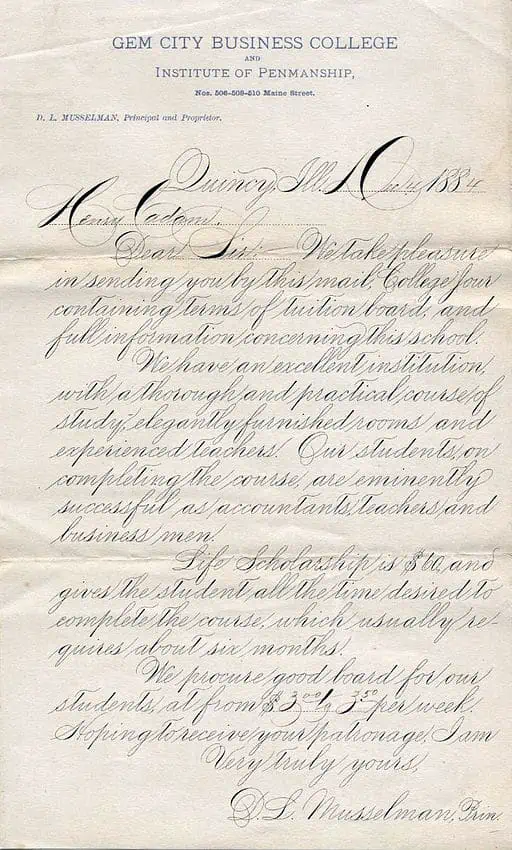 GEM CITY BUSINESS COLLEGE
AND
INSTITUTE OF PENMANSHIP,
Nos. 506-508-510 Maine Street.
D. L. MUSSELMAN, Principal and Proprietor.
Quincy, Ill. 188
Henry
Dear Sir: We take pleasure
in sending you by this mail, College Jour
containing terms of tuition board, and
full information concerning this school.
We have an excellent institution,
with a thorough and practical course of
study, elegantly furnished rooms and
experienced teachers. Our students, on
completing the course, are eminently
successful as accountants, teachers and
business men.
Life Scholarship is $60, and
gives the student all the time desired to
complete the course, which usually re-
quires about six months.
We procure good board for our
students, at from $3.00 to 3.50 per week.
Hoping to receive your patronage, I am
Very truly yours,
D. L. Musselman, Prin.